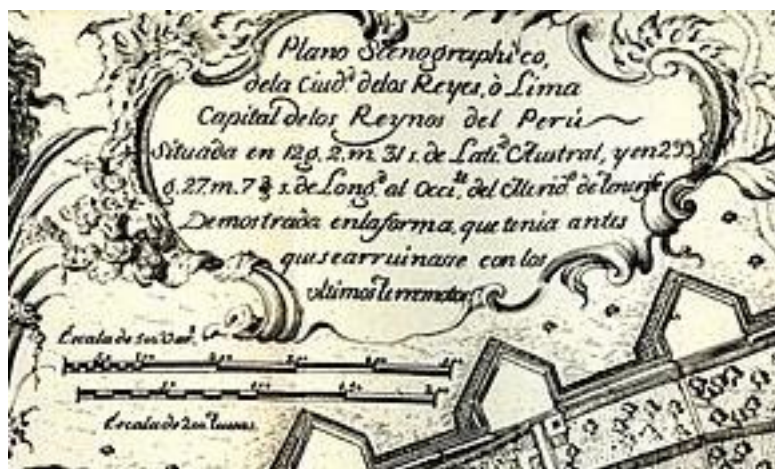 Plano Scenographico,
dela Ciud.ᵈ delos Reyes, ò Lima
Capital delos Reynos del Perú
Situada en 12g. 2.m. 31s. de Lati.ᵈ Austral, y en 299
g. 27.m. 7 s. de Long.ᵈ al Occi.ᵗᵉ del Merid.º de Tenerife
Demostrada en la forma, que tenia antes
que se arruinasse con los
ultimos terremotos
Escala de
Escala de 200 tuesas